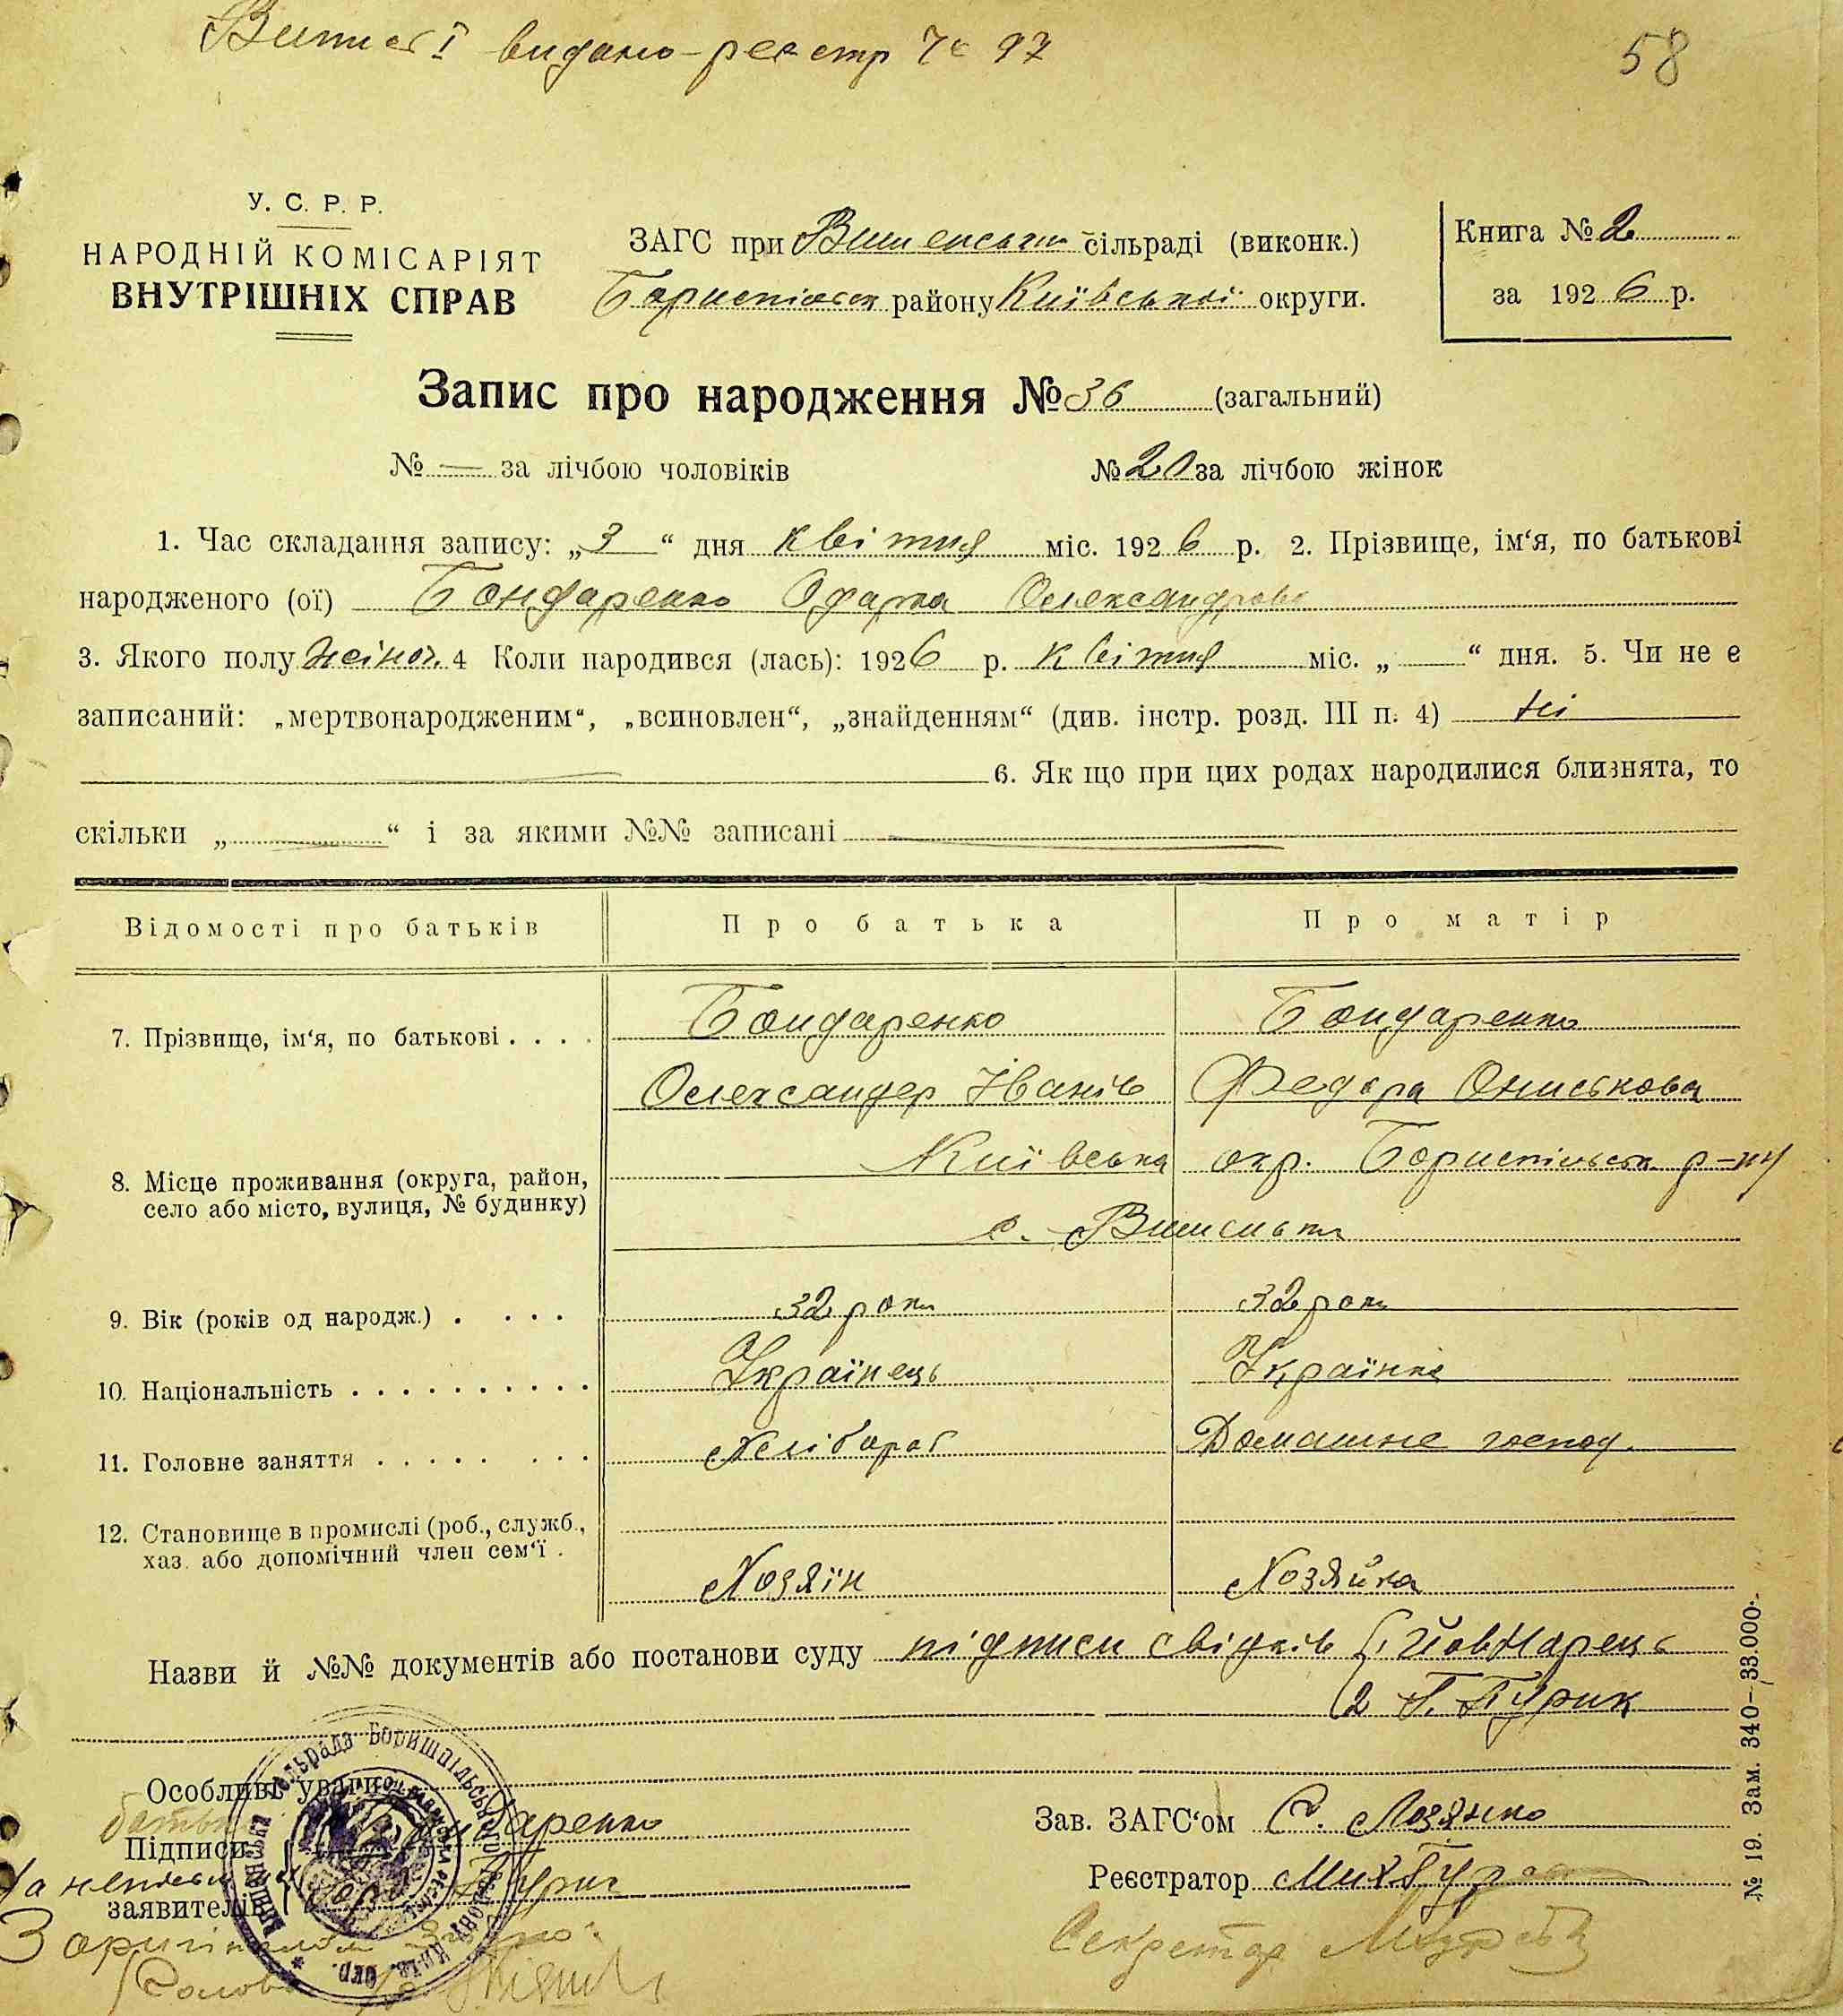 видано - реєстр № 97
58
У. С. Р. Р.
НАРОДНІЙ КОМІСАРІЯТ
ВНУТРІШНІХ СПРАВ
ЗАГС при Вишенський сільраді (виконк.)
Бориспільськ району Київської округи.
Книга № 2
за 1926 р.
Запис про народження № 36 (загальний)
№ — за лічбою чоловіків
№ 20 за лічбою жінок
1. Час складання запису: „3“ дня квітня міс. 1926 р. 2. Прізвище, ім‘я, по батькові
народженого (ої) Бондаренко Одарка Олександрова
3. Якого полу жіноч. 4 Коли народився (лась): 1926 р. квітня міс. „—“ дня. 5. Чи не є
записаний: „мертвонародженим“, „всиновлен“, „знайденням“ (див. інстр. розд. III п. 4) ні
6. Як що при цих родах народилися близнята, то
скільки „ “ і за якими №№ записані
Відомості про батьків Про батька Про матір
7. Прізвище, ім‘я, по батькові . . . . Бондаренко Бондаренко
Олександер Іванів Федора Ониськова
8. Місце проживання (округа, район,
село або місто, вулиця, № будинку)
Київська окр. Бориспільськ р-ну
с. Вишеньки
9. Вік (років од народж.) . . . . 32 роки 32 роки
10. Національність . . . . . . . . . . Українець Українка
11. Головне заняття . . . . . . . . Хлібороб Домашнє господ.
12. Становище в промислі (роб., служб.,
хаз. або допомічний член сем‘ї .
Хозяїн Хозяйка
Назви й №№ документів або постанови суду підписи свідків 1 Йовнарець
2 Г. Гурик
Особливі уваги
батьк Бондаренко
Підписи
заявителів Гурик
Зав. ЗАГС‘ом С. Лозянко
Реєстратор
З оригіналом
Голова
Секретар
№ 19. Зам. 340—33.000.